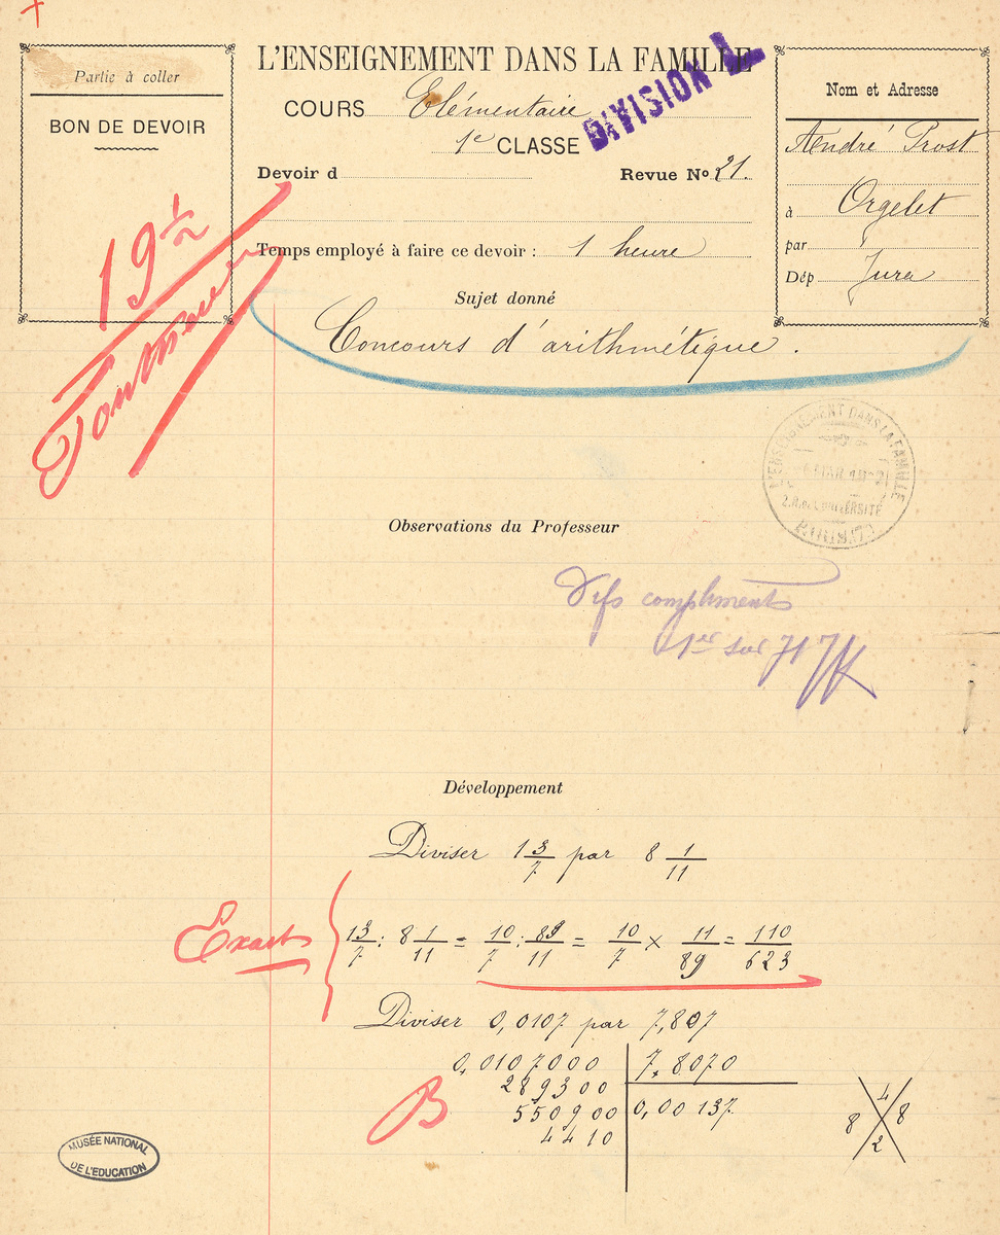 Partie à coller
BON DE DEVOIR
19 1/2
L'ENSEIGNEMENT DANS LA FAMILLE
COURS Elémentaire
1e CLASSE
DIVISION
Devoir d
Revue No 21.
Temps employé à faire ce devoir : 1 heure
Nom et Adresse
André Prost
à Orgelet
par
Dép Jura
Sujet donné
Concours d'arithmétique.
L'ENSEIGNEMENT DANS LA FAMILLE
PARIS
Observations du Professeur
Vifs compliments
1er sur 71
Développement
Diviser 1 3/7 par 8 1/11
Exact
1 3/7 : 8 1/11 = 10/7 : 89/11 = 10/7 × 11/89 = 110/623
Diviser 0,0107 par 7,807
0,0107000 7,8070
289300
550900 0,00137
4410
B
4
8 8
2
MUSÉE NATIONAL
DE L'EDUCATION